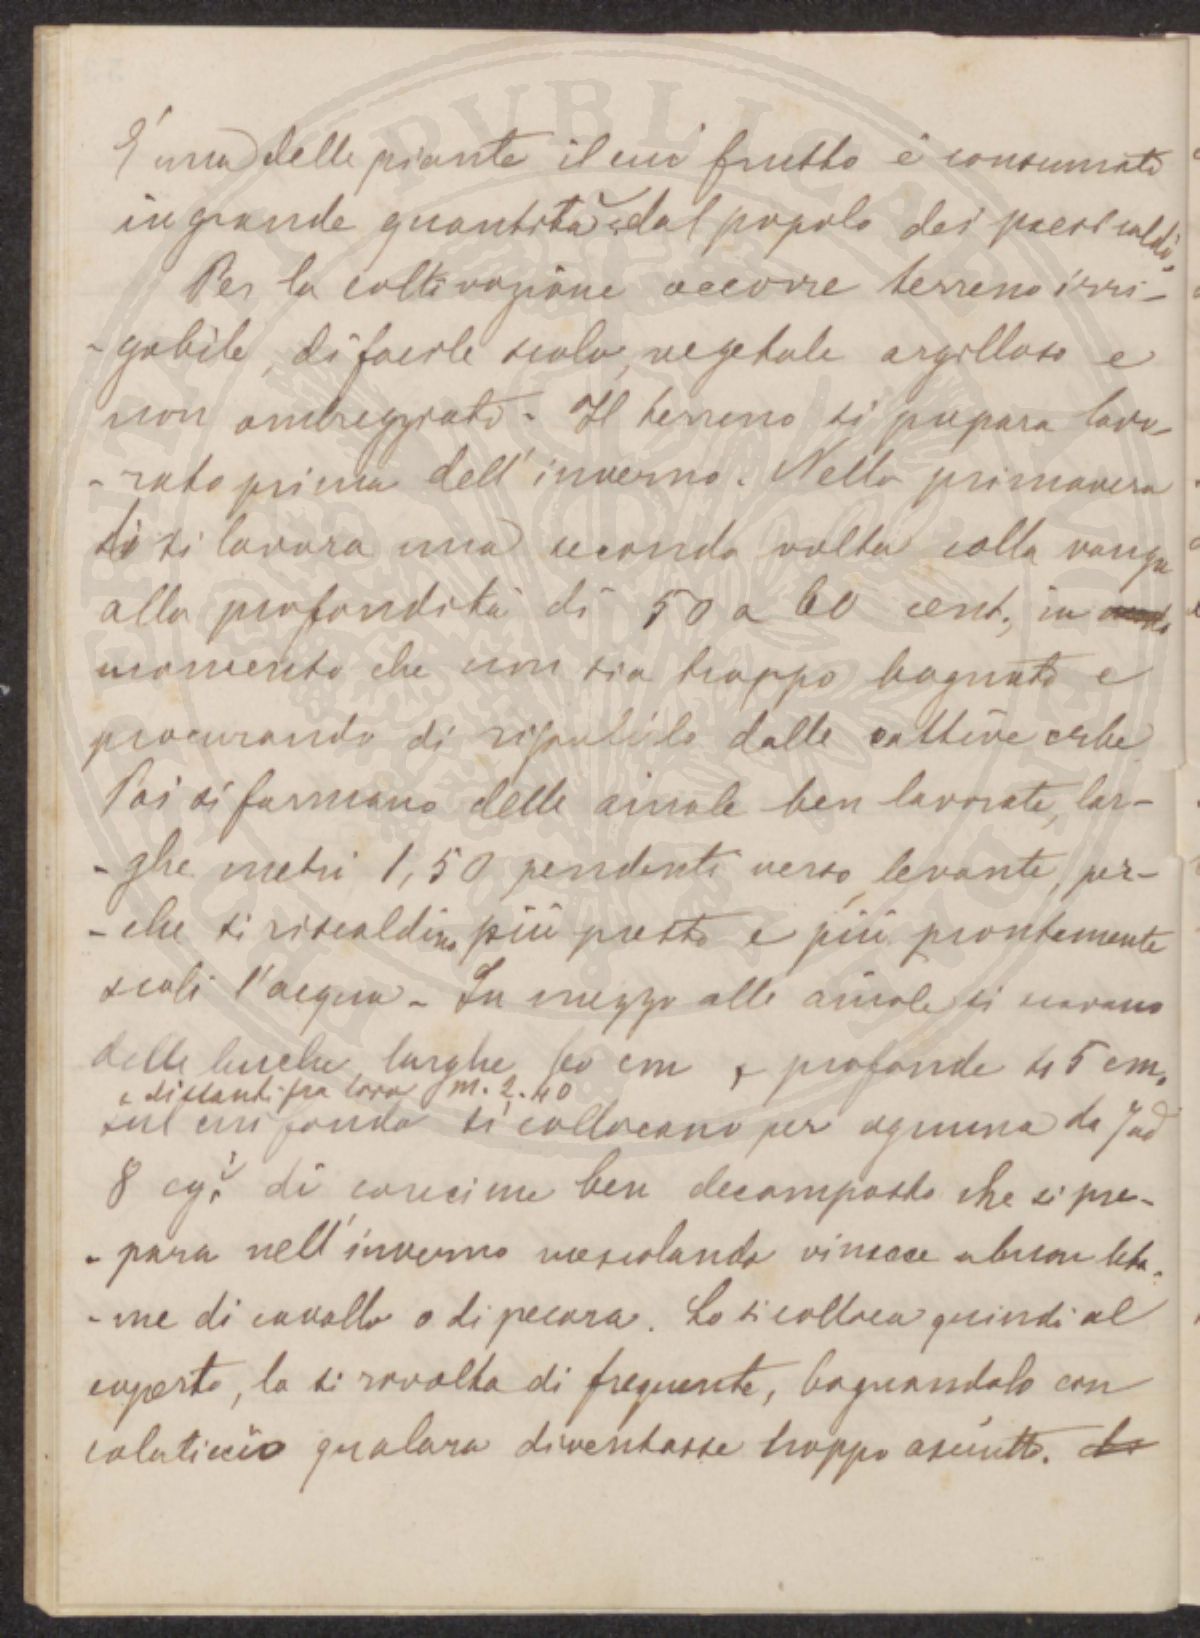 E' una delle piante il cui frutto è consumato
in grande quantità dal popolo dei paesi caldi.
Per la coltivazione occorre terreno irri-
-gabile, di facile scolo, vegetale argilloso e
non ombreggiato. Il terreno si prepara lavo-
-rato prima dell'inverno. Nella primavera
lo si lavora una seconda volta colla vanga
alla profondità di 50 a 60 cent., in
momento che non sia troppo bagnato e
procurando di ripulirlo dalle cattive erbe
Poi si formano delle aiuole ben lavorate, lar-
-ghe metri 1,50 pendenti verso levante, per-
-che si riscaldino più presto e più prontamente
scoli l'acqua - In mezzo alle aiuole si scavano
delle buche larghe 60 cm e profonde 45 cm.
e distanti fra loro m. 2.40
sul cui fondo si collocano per ognuna da 7 ad
8 cg.i di concime ben decomposto che si pre-
-para nell'inverno mescolando vinacce a buon leta-
-me di cavallo o di pecora. Lo si colloca quindi al
coperto, lo si rivolta di frequente, bagnandolo con
colaticcio qualora diventasse troppo asciutto.